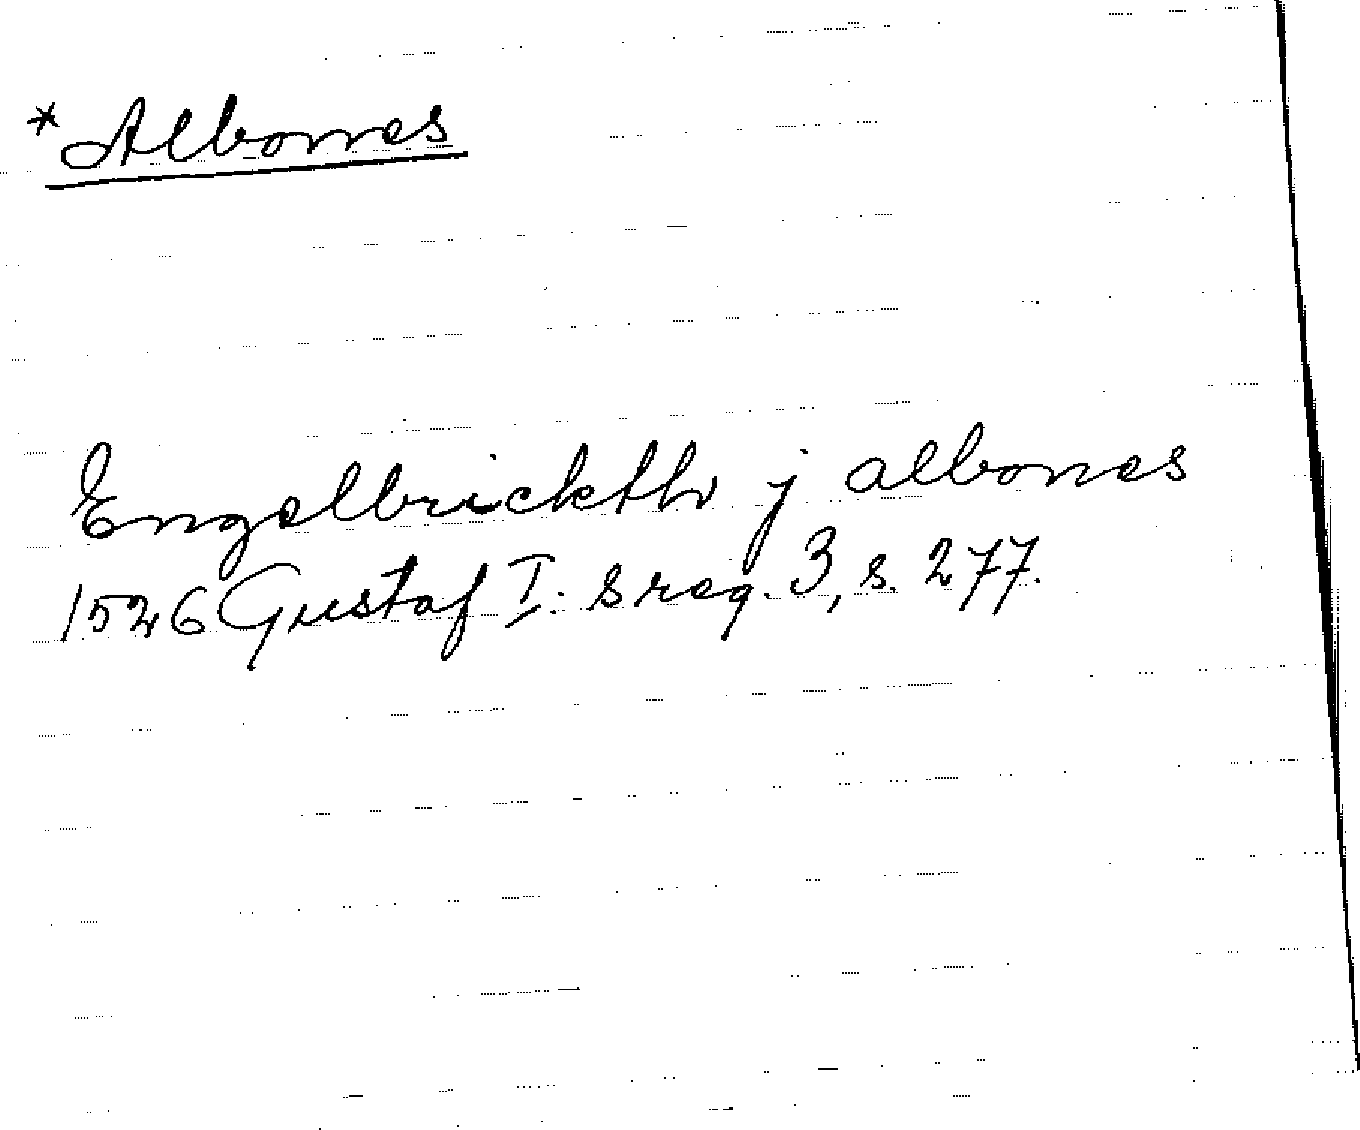 * Albones
Engelbrickth j albones
1526 Gustaf I:s reg. 3, s. 277.